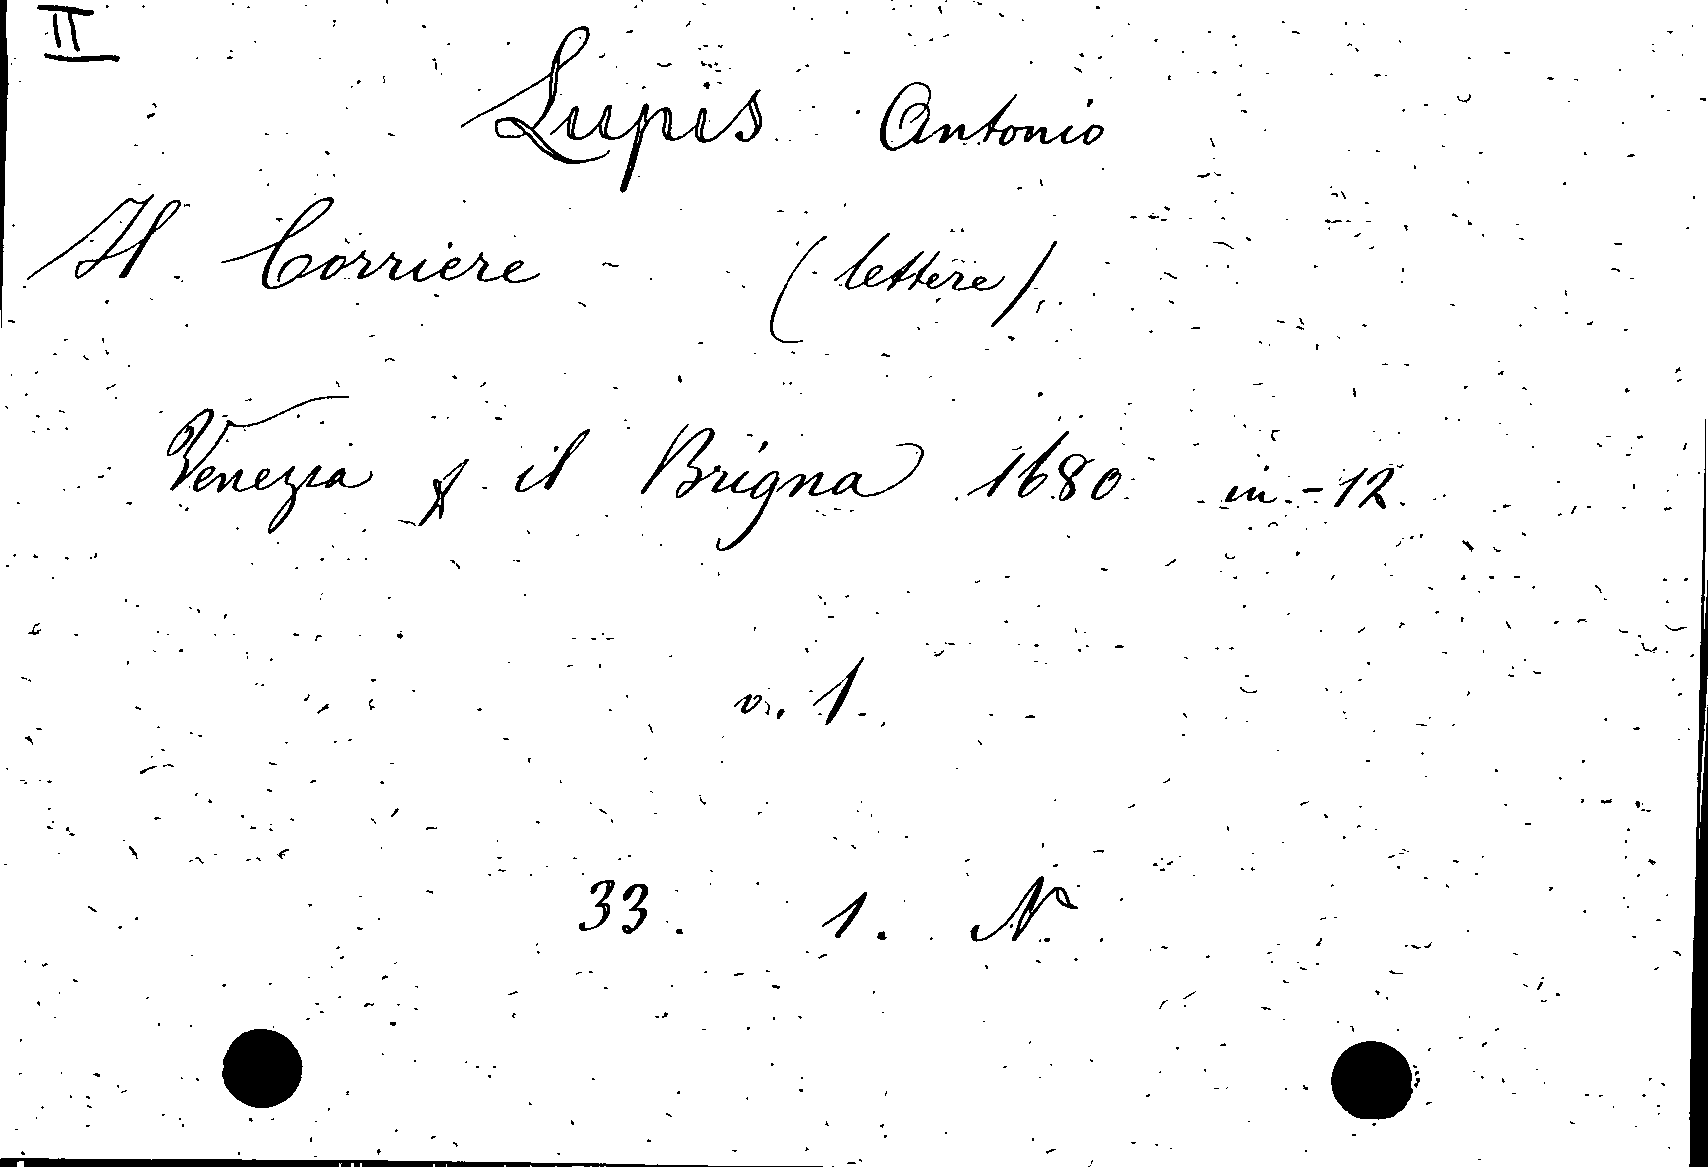 II
Lupis Antonio
Il Corriere - (lettere)
Venezia p il Brigna 1680 in-12
v. 1.
33. 1. N.